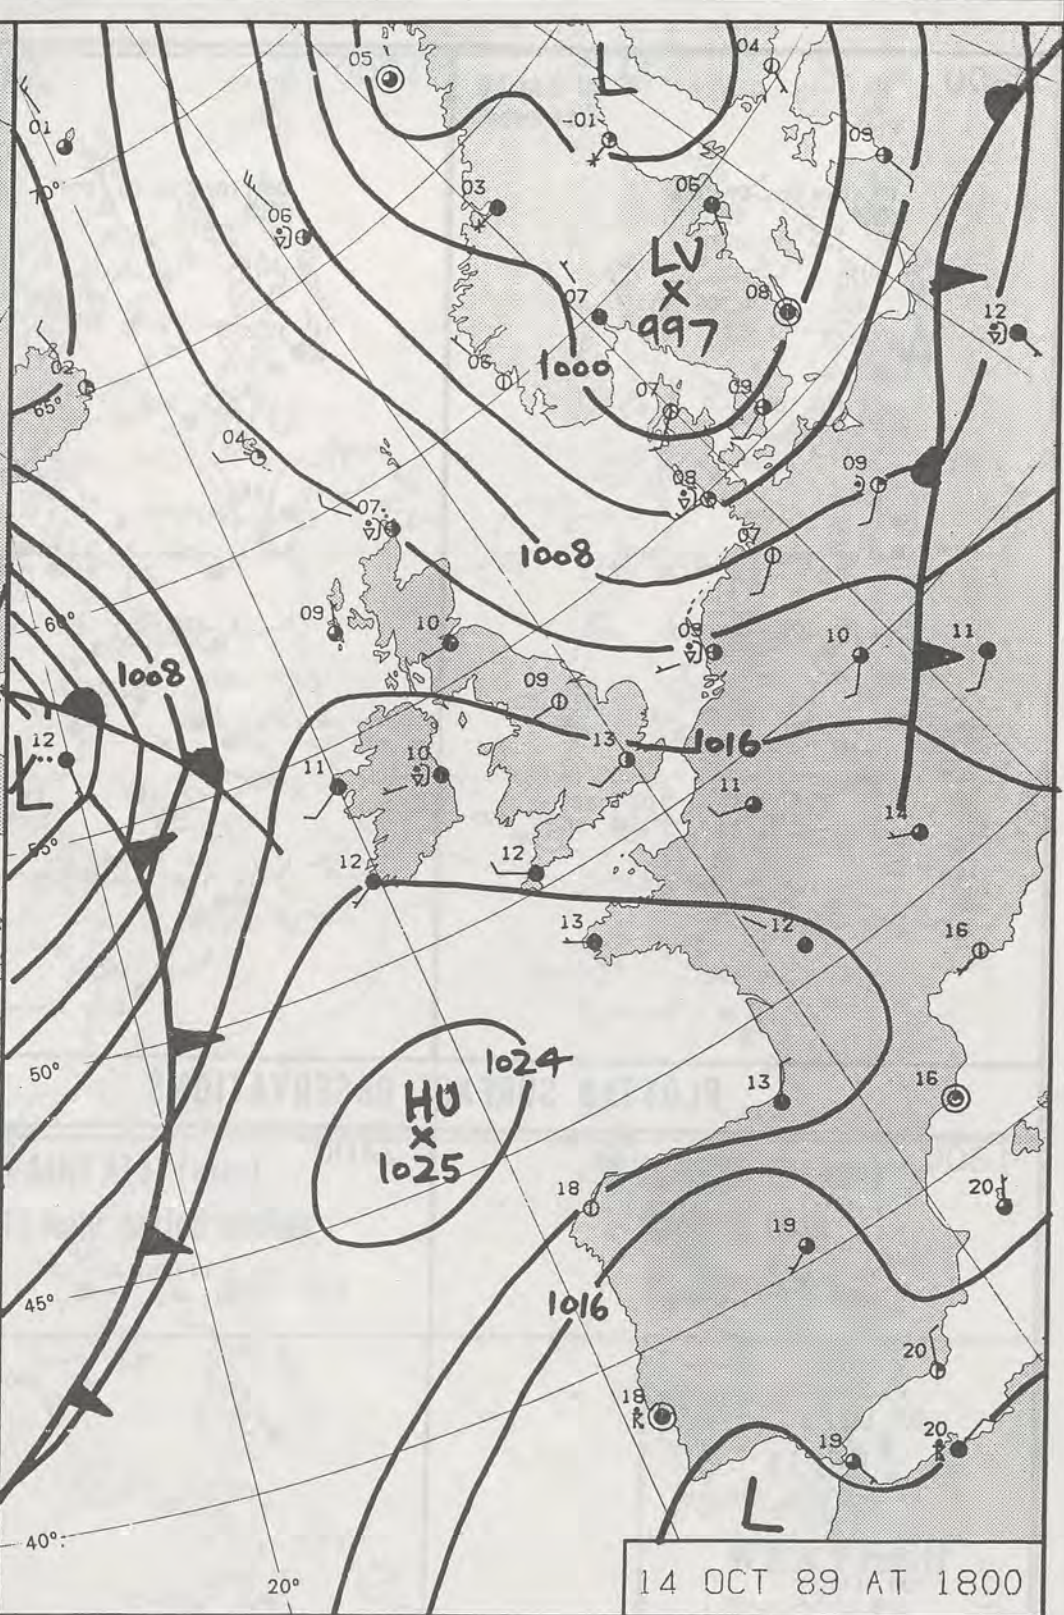 05
L
04
-01
01
09
70°
03
06
06
LV
X
997
07
08
12
1000
06
02
65°
07
09
04
08
09
07
1008
07
60°
09
10
09
10
11
1008
09
12
L
11
10
13
1016
11
14
55°
12
12
13
12
16
1024
50°
HU
X
1025
13
16
18
20
19
45°
1016
20
18
R
19
20
R
L
40°
20°
14 OCT 89 AT 1800